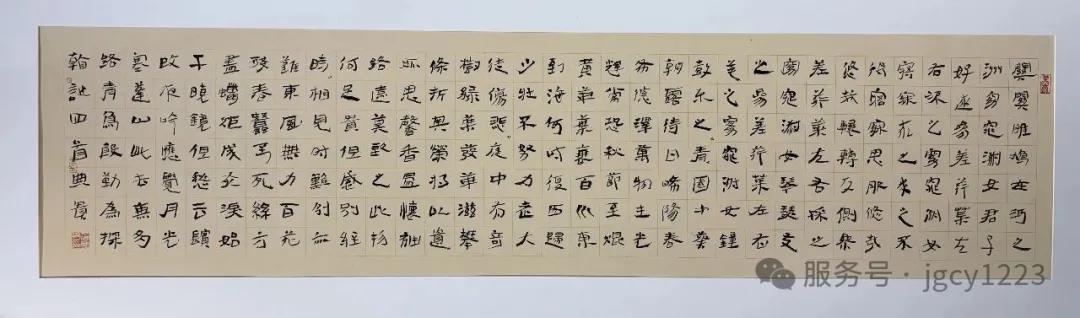 關關雎鳩在河之
洲窈窕淑女君子
好逑參差荇菜左
右流之窈窕淑女
寤寐求之求之不
得寤寐思服悠哉
悠哉輾轉反側參
差荇菜左右採之
窈窕淑女琴瑟友
之參差荇菜左右
芼之窈窕淑女鐘
鼓樂之青園中葵
朝露待日晞陽春
布德澤萬物生光
輝常恐秋節至焜
黃華葉衰百川東
到海何時復西歸
少壯不努力老大
徒傷悲庭中有奇
樹綠葉發華滋攀
條折其榮將以遺
所思馨香盈懷袖
路遠莫致之此物
何足貴但感別經
時相見時難別亦
難東風無力百花
殘春蠶到死絲方
盡蠟炬成灰淚始
干曉鏡但愁雲鬢
改夜吟應覺月光
寒蓬山此去無多
路青鳥殷勤為探
四首
服务号·jgcy1223